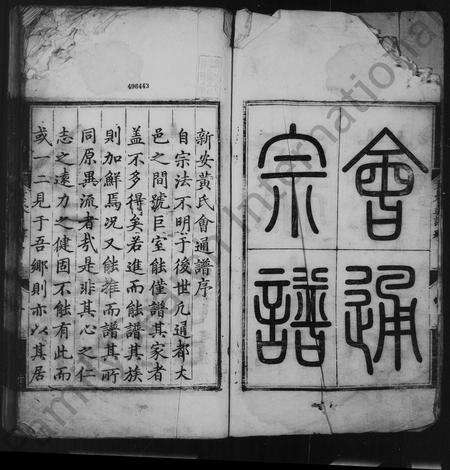 會通
宗譜
496443
新安黃氏會通譜序
自宗法不明于後世凡通都大
邑之間號巨室能僅譜其家者
盖不多得矣若進而能譜其族
則加鮮焉况又能推而譜其所
同原異流者哉是非其心之仁
志之遠力之健固不能有此而
或一二見于吾鄉則亦以其居